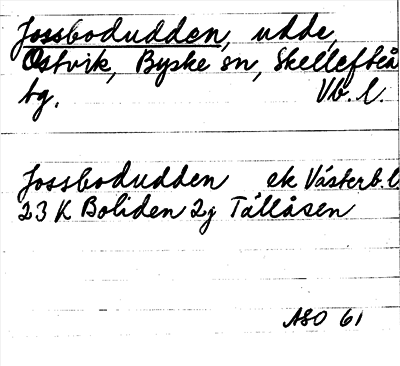 Jossbodudden, udde,
Ostvik, Byske sn, Skellefteå
tg. Vb. l.
Jossbodudden ek Västerb. l
23 K Boliden 2g Tållåsen
ASO 61